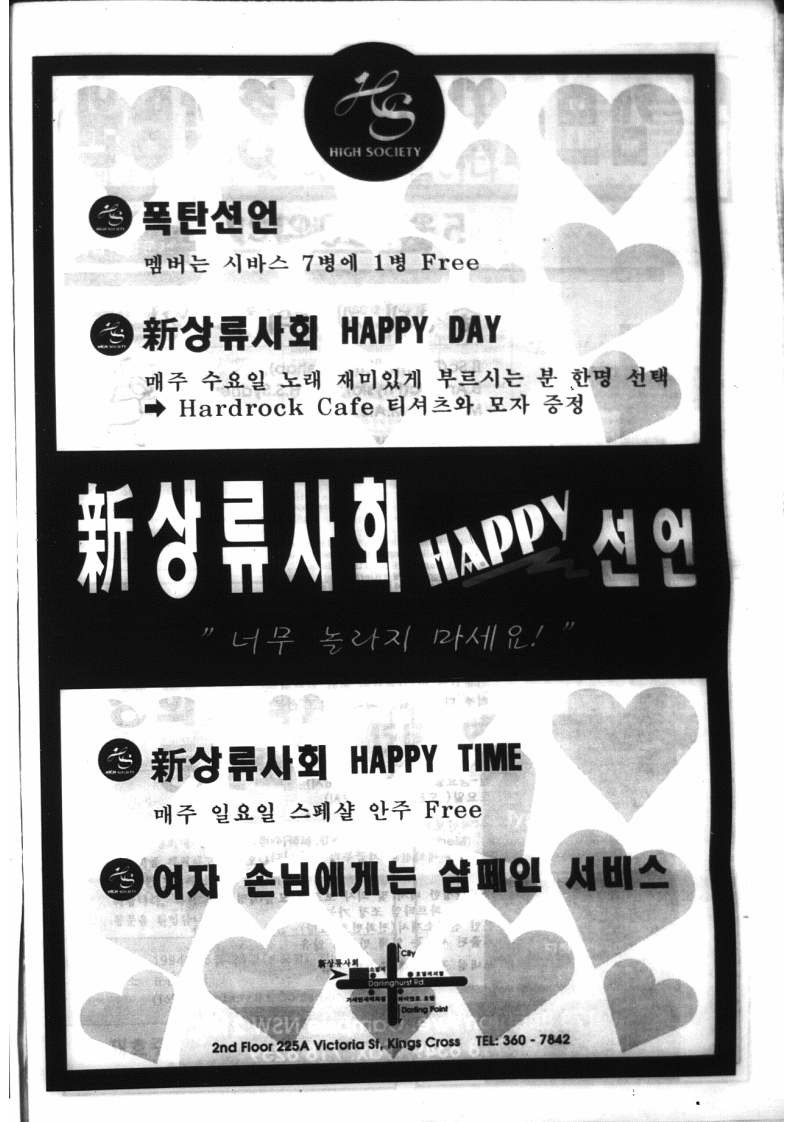 HS
HIGH SOCIETY
폭탄선언
멤버는 시바스 7병에 1병 Free
新상류사회 HAPPY DAY
매주 수요일 노래 재미있게 부르시는 분 한명 선택
➡ Hardrock Cafe 티셔츠와 모자 증정
新상류사회 HAPPY 선언
" 너무 놀라지 마세요! "
新상류사회 HAPPY TIME
매주 일요일 스페샬 안주 Free
여자 손님에게는 샴페인 서비스
City
新상류사회
Darlinghurst Rd
Darling Point
2nd Floor 225A Victoria St, Kings Cross TEL: 360 - 7842